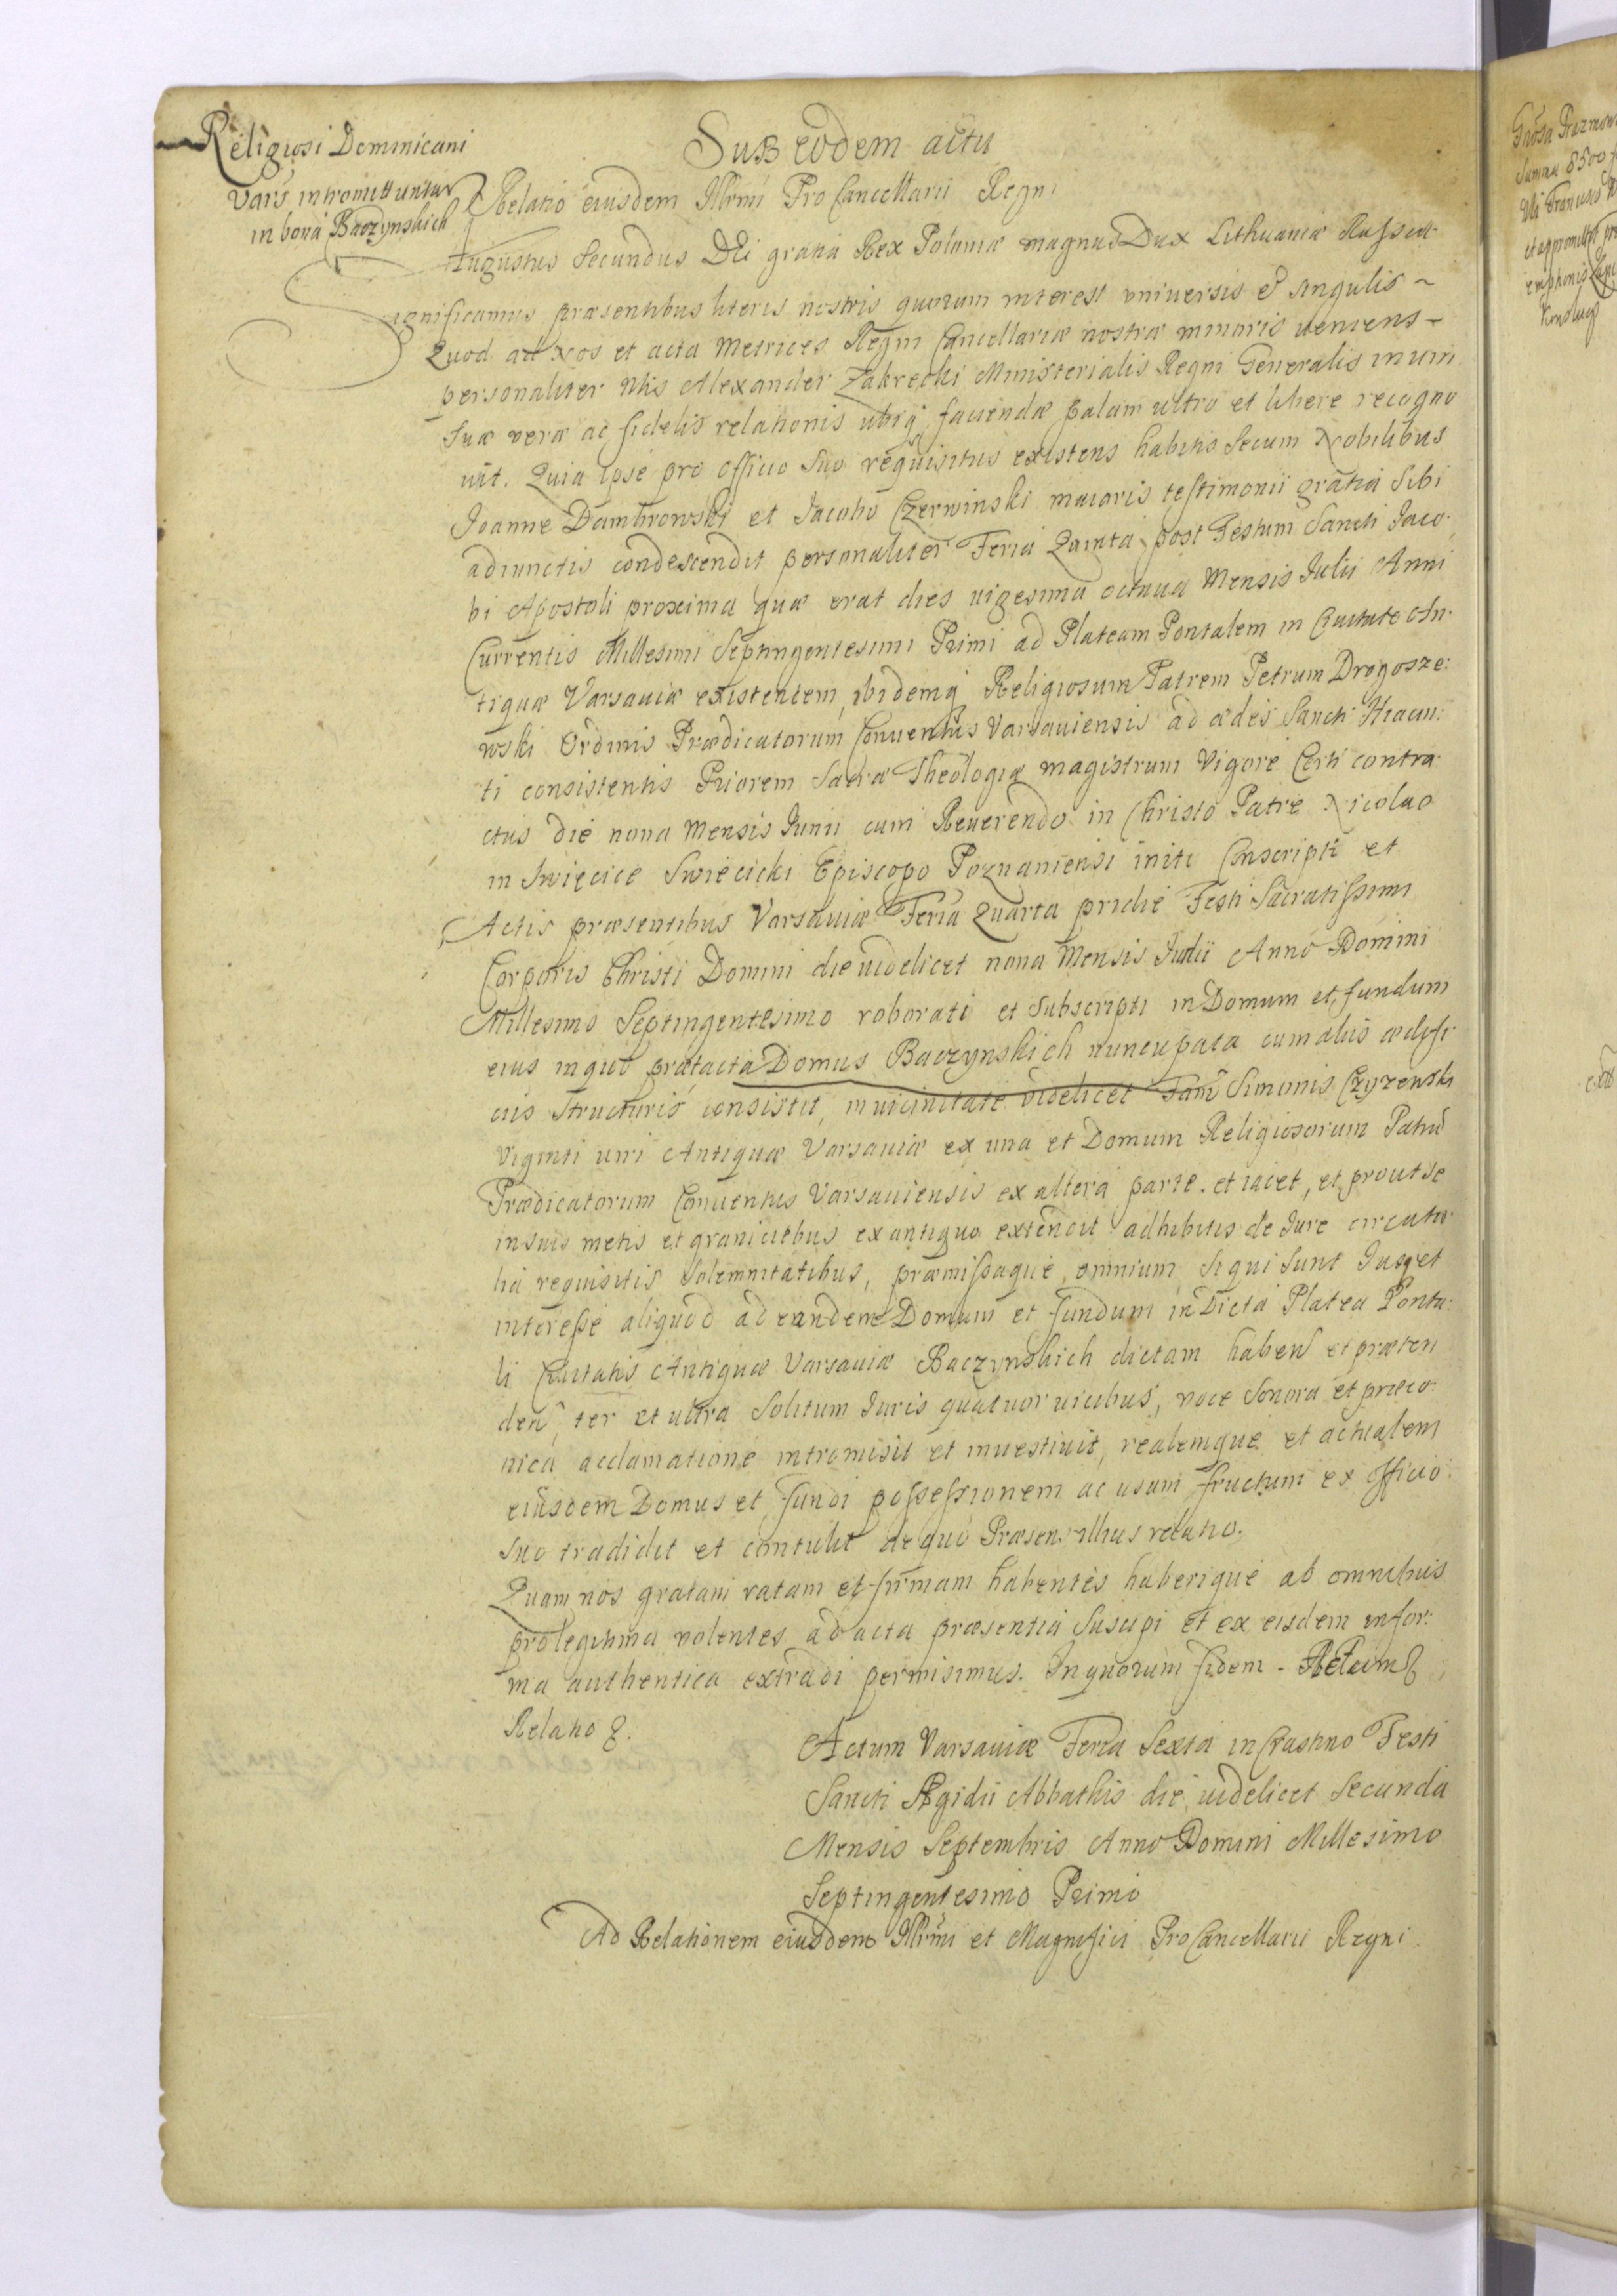 Religiosi Dominicani
Vars intromittuntur
in bona Baczynskich
Sub eodem actu
Relatio eiusdem Illrmi Pro Cancellarii Regni
Augustus Secundus Dei gratia Rex Poloniæ magnus Dux Lithuaniæ Russiæ
Significamus præsentibus literis nostris quorum interest vniversis et singulis ~
Quod ad Nos et acta Metrices Regni Cancellariæ nostræ minoris veniens ~
personaliter Nlis Alexander Zakrecki Ministerialis Regni Generalis in vim
suæ veræ ac fidelis relationis ubiq faciendæ palam ultro et libere recogno
uit. Quia ipse pro officio suo requisitus existens habitis secum Nobilibus
Joanne Dambrowski et Jacobo Czerwinski maioris testimonii gratia sibi
adiunctis condescendit personaliter Feria Quinta post Festum Sancti Jaco:
bi Apostoli proxima quæ erat dies uigesima octaua Mensis Julii Anni
Currentis Millesimi Septingentesimi Primi ad Plateam Pontalem in Ciuitate An:
tiquæ Varsauiæ existentem, ibidemq Religiosum Patrem Petrum Drogosze:
wski Ordinis Prædicatorum Conuentus Varsauiensis ad ædes Sancti Hiacin:
ti consistentis Priorem Sacræ Theologiæ magistrum Vigore Certi contra:
ctus die nona Mensis Junii cum Reuerendo in Christo Patre Nicolao
in Swięcice Swięcicki Episcopo Poznaniensi initi Conscripti et
Actis præsentibus Varsauiæ Feria Quarta pridie Festi Sacratissimi
Corporis Christi Domini die uidelicet nona Mensis Junii Anno Domini
Millesimo Septingentesimo roborati et subscripti in Domum et fundum
eius in quo prætacta Domus Baczynskich nuncupata cum aliis ædifi
ciis structuris consistit, in uicinitate videlicet Fam Simonis Czyzenski
viginti uiri Antiquæ Varsauiæ ex una et Domum Religiosorum Patrū
Prædicatorum Conuentus Varsauiensis ex altera parte. et iacet, et prout se
in suis metis et graniciebus ex antiquo extendit adhibitis de Jure circa ta
lia requisitis solemnitatibus, præmissaque, omnium si qui sunt Jus et
interesse aliquod ad eandem Domum et fundum in Dicta Platea Ponta:
li Ciuitatis Antiquæ Varsauiæ Baczynskich dictam haben et præten
den, ter et ultra solitum Juris quatuor uicibus, voce sonora et præco:
nica acclamatione intromisit et inuestiuit, realemque et actualem
eiusdem Domus et fundi possessionem ac usum fructum ex officio
suo tradidit et contulit de quo Præsens illius relatio.
Quam nos gratam ratam et firmam habentes haberique ab omnibus
pro legitima volentes ad acta præsentia suscipi et ex eisdem in for:
ma authentica extradi permisimus. In quorum fidem - Actum
Relatio
Actum Varsauiæ Feria Sexta in Crastino Festi
Sancti Ægidii Abbathis die uidelicet Secunda
Mensis Septembris Anno Domini Millesimo
Septingentesimo Primo
Ad Relationem eiusdem Illrmi et Magnifici Pro Cancellarii Regni